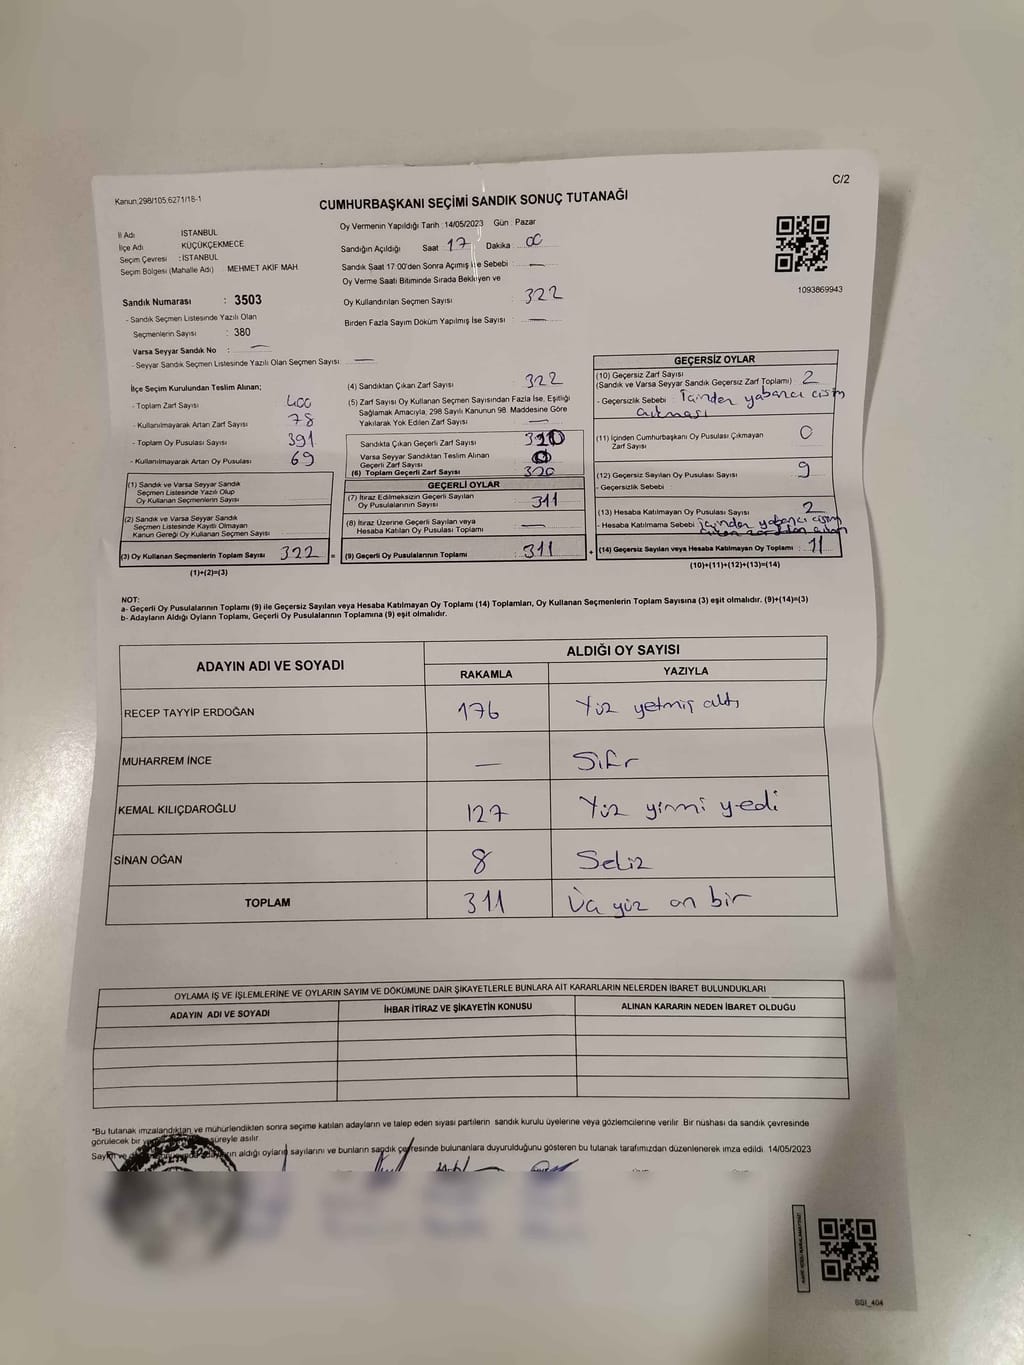 C/2
Kanun,298/105,6271/16-1
CUMHURBAŞKANI SEÇİMİ SANDIK SONUÇ TUTANAĞI
İl Adı İSTANBUL
İlçe Adı KÜÇÜKÇEKMECE
Seçim Çevresi : İSTANBUL
Seçim Bölgesi (Mahalle Adı) MEHMET AKİF MAH
Sandık Numarası : 3503
- Sandık Seçmen Listesinde Yazılı Olan
Seçmenlerin Sayısı : 380
Varsa Seyyar Sandık No : —
- Seyyar Sandık Seçmen Listesinde Yazılı Olan Seçmen Sayısı : —
Oy Vermenin Yapıldığı Tarih : 14/05/2023 Gün : Pazar
Sandığın Açıldığı Saat 17 Dakika 00
Sandık Saat 17:00'den Sonra Açımış ise Sebebi : —
Oy Verme Saati Bitiminde Sırada Bekleyen ve
Oy Kullandırılan Seçmen Sayısı : 322
Birden Fazla Sayım Döküm Yapılmış İse Sayısı : —
1093869943
İlçe Seçim Kurulundan Teslim Alınan;
- Toplam Zarf Sayısı : 400
- Kullanılmayarak Artan Zarf Sayısı : 78
- Toplam Oy Pusulası Sayısı : 391
- Kullanılmayarak Artan Oy Pusulası : 69
(1) Sandık ve Varsa Seyyar Sandık
Seçmen Listesinde Yazılı Olup
Oy Kullanan Seçmenlerin Sayısı
(2) Sandık ve Varsa Seyyar Sandık
Seçmen Listesinde Kayıtlı Olmayan
Kanun Gereği Oy Kullanan Seçmen Sayısı
(3) Oy Kullanan Seçmenlerin Toplam Sayısı : 322 =
(1)+(2)=(3)
(4) Sandıktan Çıkan Zarf Sayısı : 322
(5) Zarf Sayısı Oy Kullanan Seçmen Sayısından Fazla İse, Eşitliği
Sağlamak Amacıyla, 298 Sayılı Kanunun 98. Maddesine Göre
Yakılarak Yok Edilen Zarf Sayısı : —
Sandıkta Çıkan Geçerli Zarf Sayısı :
Varsa Seyyar Sandıktan Teslim Alınan
Geçerli Zarf Sayısı : 0
(6) Toplam Geçerli Zarf Sayısı : 320
GEÇERLİ OYLAR
(7) İtiraz Edilmeksizin Geçerli Sayılan
Oy Pusulalarının Sayısı : 311
(8) İtiraz Üzerine Geçerli Sayılan veya
Hesaba Katılan Oy Pusulası Toplamı : —
(9) Geçerli Oy Pusulalarının Toplamı : 311 +
GEÇERSİZ OYLAR
(10) Geçersiz Zarf Sayısı
(Sandık ve Varsa Seyyar Sandık Geçersiz Zarf Toplamı) : 2
- Geçersizlik Sebebi : İçinden yabancı cisim
çıkması
(11) İçinden Cumhurbaşkanı Oy Pusulası Çıkmayan
Zarf Sayısı : 0
(12) Geçersiz Sayılan Oy Pusulası Sayısı : 9
- Geçersizlik Sebebi :
(13) Hesaba Katılmayan Oy Pusulası Sayısı : 2
- Hesaba Katılmama Sebebi : İçinden yabancı cisim
çıkan zarftan çıkan
(14) Geçersiz Sayılan veya Hesaba Katılmayan Oy Toplamı : 11
(10)+(11)+(12)+(13)=(14)
NOT:
a- Geçerli Oy Pusulalarının Toplamı (9) ile Geçersiz Sayılan veya Hesaba Katılmayan Oy Toplamı (14) Toplamları, Oy Kullanan Seçmenlerin Toplam Sayısına (3) eşit olmalıdır. (9)+(14)=(3)
b- Adayların Aldığı Oyların Toplamı, Geçerli Oy Pusulalarının Toplamına (9) eşit olmalıdır.
ADAYIN ADI VE SOYADI
ALDIĞI OY SAYISI
RAKAMLA YAZIYLA
RECEP TAYYİP ERDOĞAN 176 Yüz yetmiş altı
MUHARREM İNCE — Sıfır
KEMAL KILIÇDAROĞLU 127 Yüz yirmi yedi
SİNAN OĞAN 8 Sekiz
TOPLAM 311 Üç yüz on bir
OYLAMA İŞ VE İŞLEMLERİNE VE OYLARIN SAYIM VE DÖKÜMÜNE DAİR ŞİKAYETLERLE BUNLARA AİT KARARLARIN NELERDEN İBARET BULUNDUKLARI
ADAYIN ADI VE SOYADI İHBAR İTİRAZ VE ŞİKAYETİN KONUSU ALINAN KARARIN NEDEN İBARET OLDUĞU
*Bu tutanak imzalandıktan ve mühürlendikten sonra seçime katılan adayların ve talep eden siyasi partilerin sandık kurulu üyelerine veya gözlemcilerine verilir. Bir nüshası da sandık çevresinde
görülecek bir süreyle asılır
aldığı oyların sayılarını ve bunların sandık çevresinde bulunanlara duyurulduğunu gösteren bu tutanak tarafımızdan düzenlenerek imza edildi. 14/05/2023
SGI_404